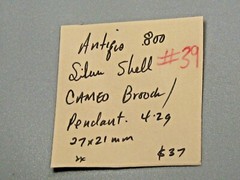 Antiqe .800
Silver Shell #39
CAMEO Brooch/
Pendant. 4.2g
27x21mm
$37